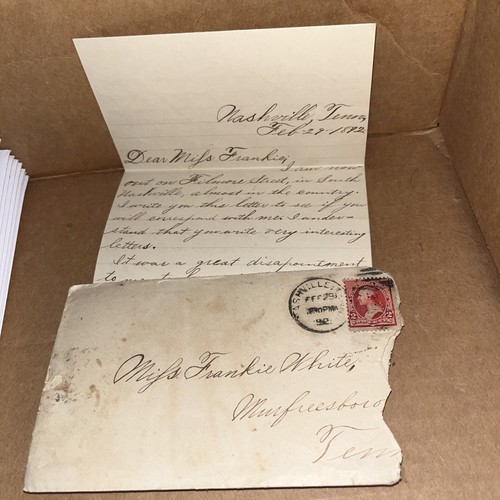 Nashville, Tenn,
Feb-29-1892
Dear Miss Frankie,
I am now
out on Filmore Street, in South
Nashville, almost in the country.
I write you this letter to see if you
will correspond with me. I under-
stand that you write very interesting
letters.
It was a great disapointment
to
NASHVILLE
FEB 29
92
2 2
Miss Frankie White,
Murfreesboro
Tenn